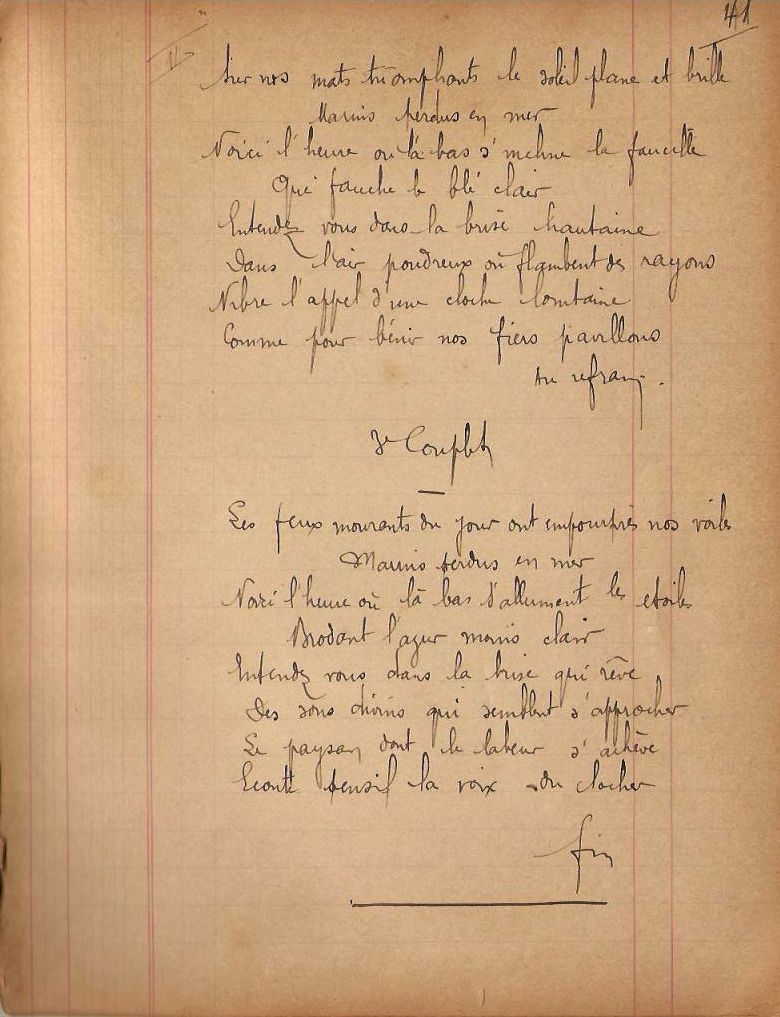 41
II
Sur nos mats triomphants le soleil plane et brille
Marins perdus en mer
Voici l'heure où là bas s'incline la faucille
Qui fauche le blé clair
Entendez vous dans la brise hautaine
Dans l'air poudreux où flambent des rayons
Vibre l'appel d'une cloche lointaine
Comme pour bénir nos fiers pavillons
Au refrain.
3e Couplet
Les feux mourants du jour ont empourprés nos voiles
Marins perdus en mer
Voici l'heure où là bas s'allument les etoiles
Brodant l'azur moins clair
Entendez vous dans la brise qui rêve
Des sons divins qui semblent s'approcher
Le paysan dont le labeur s'achève
Ecoute pensif la voix du clocher
fin